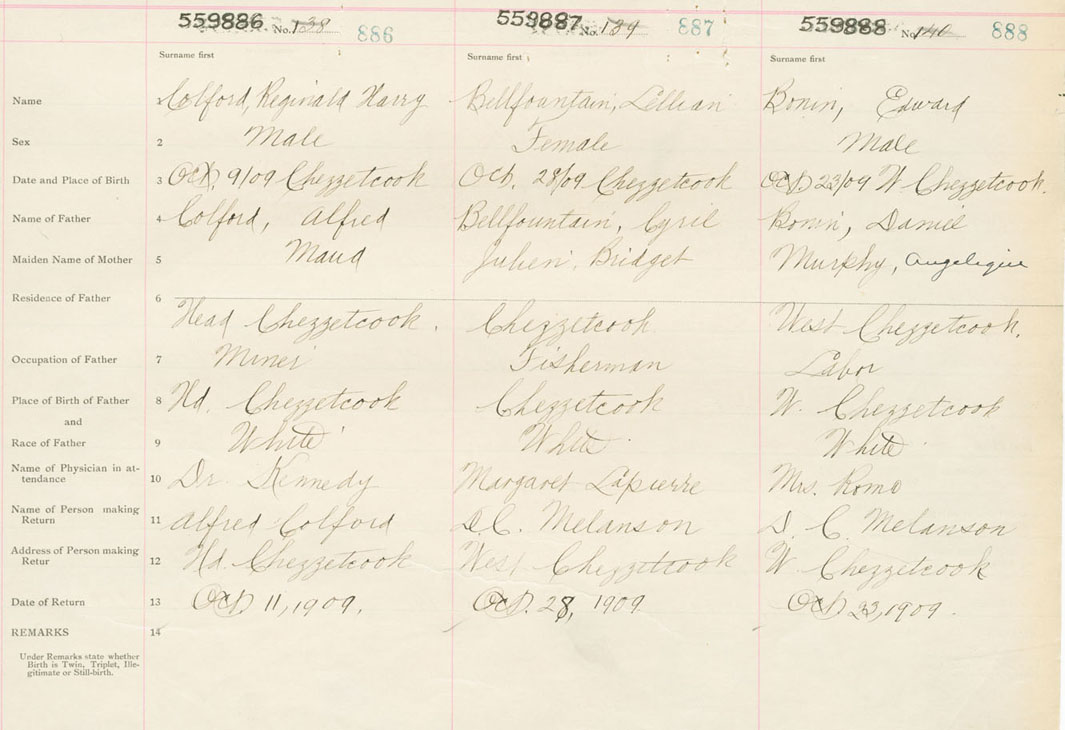 559886 No. 138 886 559887 No. 139 887 559888 No. 140 888
Surname first Surname first Surname first
Name 1 Colford, Reginald Harry Bellfountain, Lillian Bonin, Edward
Sex 2 Male Female Male
Date and Place of Birth 3 Oct. 9/09 Chezzetcook Oct. 28/09 Chezzetcook Oct. 23/09 W Chezzetcook.
Name of Father 4 Colford, Alfred Bellfountain, Cyril Bonin, Daniel
Maiden Name of Mother 5 Maud Julien. Bridget Murphy, Angelique
Residence of Father 6
Head Chezzetcook. Chezzetcook West Chezzetcook.
Occupation of Father 7 Miner Fisherman Labor
Place of Birth of Father 8 Hd. Chezzetcook Chezzetcook W. Chezzetcook
and
Race of Father 9 White White White
Name of Physician in at-
tendance 10 Dr. Kennedy Margaret Lapierre Mrs. Romo
Name of Person making
Return 11 Alfred Colford D.C. Melanson D. C. Melanson
Address of Person making
Retur 12 Hd. Chezzetcook West Chezzetcook W. Chezzetcook
Date of Return 13 Oct. 11, 1909. Oct. 28, 1909 Oct. 23, 1909.
REMARKS 14
Under Remarks state whether
Birth is Twin, Triplet, Ille-
gitimate or Still-birth.